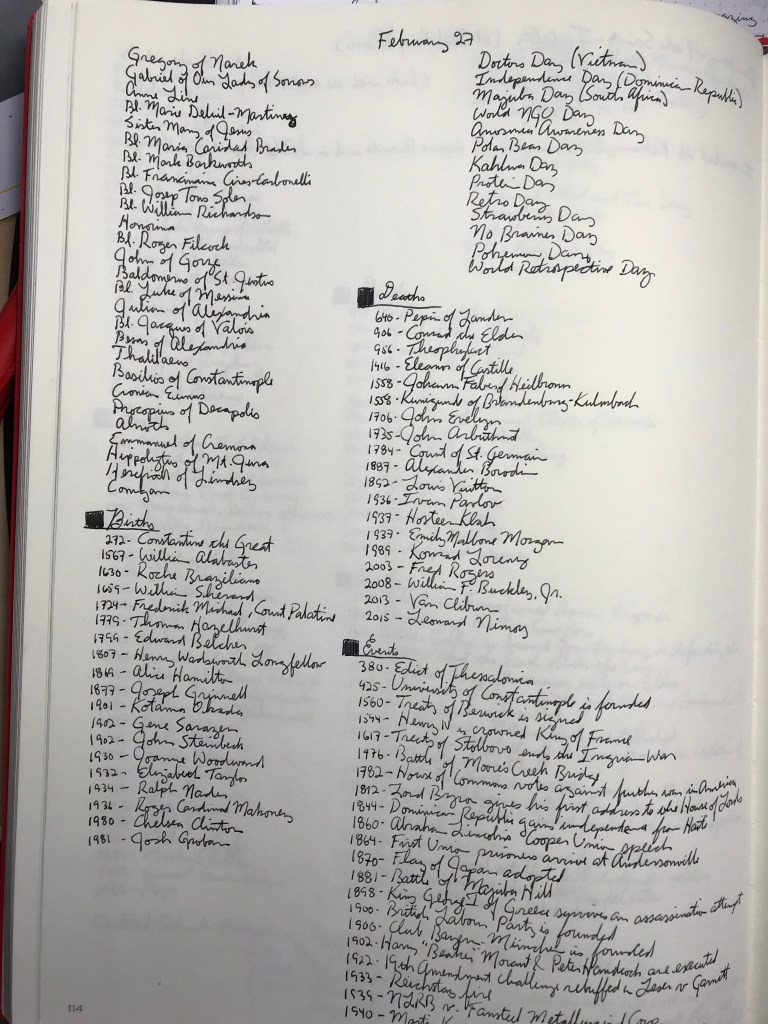 February 27
Gregory of Narek
Gabriel of Our Lady of Sorrows
Anne Line
Bl. Marie Deluil-Martiny
Sister Mary of Jesus
Bl. Maria Caridad Brader
Bl. Mark Barkworth
Bl. Francinaina Cirer-Carbonell
Bl. Josep Tous Soler
Bl. William Richardson
Honorina
Bl. Roger Filcock
John of Gorze
Baldomerus of St. Justus
Bl. Luke of Messina
Julian of Alexandria
Bl. Jacques of Valois
Besas of Alexandria
Thalilaeus
Basilios of Constantinople
Cronion Eunus
Procopius of Decapolis
Alnoth
Emmanuel of Cremona
Hippolytus of Mt.
Herefrith of Lindsey
Comgan
Doctors Day (Vietnam)
Independence Day (Dominican Republic)
Majuba Day (South Africa)
World NGO Day
Anosmia Awareness Day
Polar Bear Day
Kahlua Day
Protein Day
Retro Day
Strawberry Day
No Brainer Day
Pokemon Day
World Retrospective Day
Births
272- Constantine the Great
1567- William Alabaster
1630- Roche Braziliano
1659- William Sherard
1724- Frederick Michael, Count Palatine
1779- Thomas Hazelhurst
1799- Edward Belcher
1807- Henry Wadsworth Longfellow
1869- Alice Hamilton
1877- Joseph Grinnell
1901- Kotama Okada
1902- Gene Sarazen
1902- John Steinbeck
1930- Joanne Woodward
1932- Elizabeth Taylor
1934- Ralph Nader
1936- Roger Cardinal Mahoney
1980- Chelsea Clinton
1981- Josh Groban
Deaths
640- Pepin of Landen
906- Conrad the Elder
956- Theophylact
1416- Eleanor of Castille
1558- Johann Faber of Heilbronn
1558- Kunigunde of Brandenburg-Kulmbach
1706- John Evelyn
1735- John Arbuthnot
1784- Count of St. Germain
1887- Alexander Borodin
1892- Louis Vuitton
1936- Ivan Pavlov
1937- Hosteen Klah
1937- Emily Malbone Morgan
1989- Konrad Lorenz
2003- Fred Rogers
2008- William F. Buckley, Jr.
2013- Van Cliburn
2015- Leonard Nimoy
Events
380- Edict of Thessalonica
425- University of Constantinople is founded
1560- Treaty of Berwick is signed
1594- Henry IV is crowned King of France
1617- Treaty of Stolbovo ends the Ingrian War
1776- Battle of Moore's Creek Bridge
1782- House of Commons votes against further war in America
1812- Lord Byron gives his first address to the House of Lords
1844- Dominican Republic gains independence from Haiti
1860- Abraham Lincoln's Cooper Union speech
1864- First Union prisoners arrive at Andersonville
1870- Flag of Japan adopted
1881- Battle of Majuba Hill
1898- King George I of Greece survives an assassination attempt
1900- British Labour Party is founded
1900- Club Bayern-München is founded
1902- Harry "Breaker" Morant & Peter Handcock are executed
1922- 19th Amendment challenge rebuffed in Leser v Garnett
1933- Reichstag fire
1939- NLRB v. Fansteel Metallurgical Corp.
1940-
114